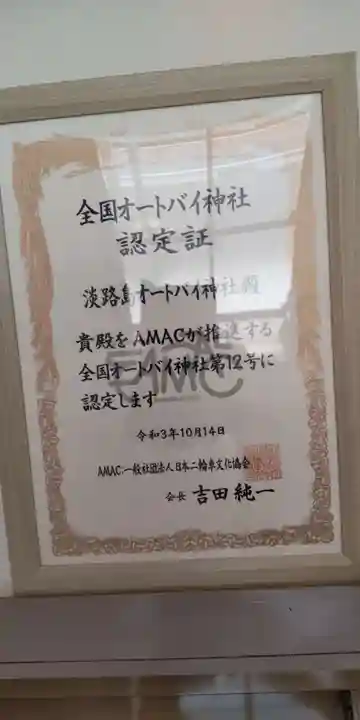 全国オートバイ神社
認定証
淡路島オートバイ神社殿
貴殿をAMACが推進する
全国オートバイ神社第12号に
認定します
令和3年10月14日
AMAC:一般社団法人日本二輪車文化協会
会長 吉田純一